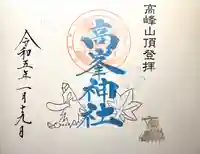 高峰山頂登拝
高峯神社
令和五年一月十九日